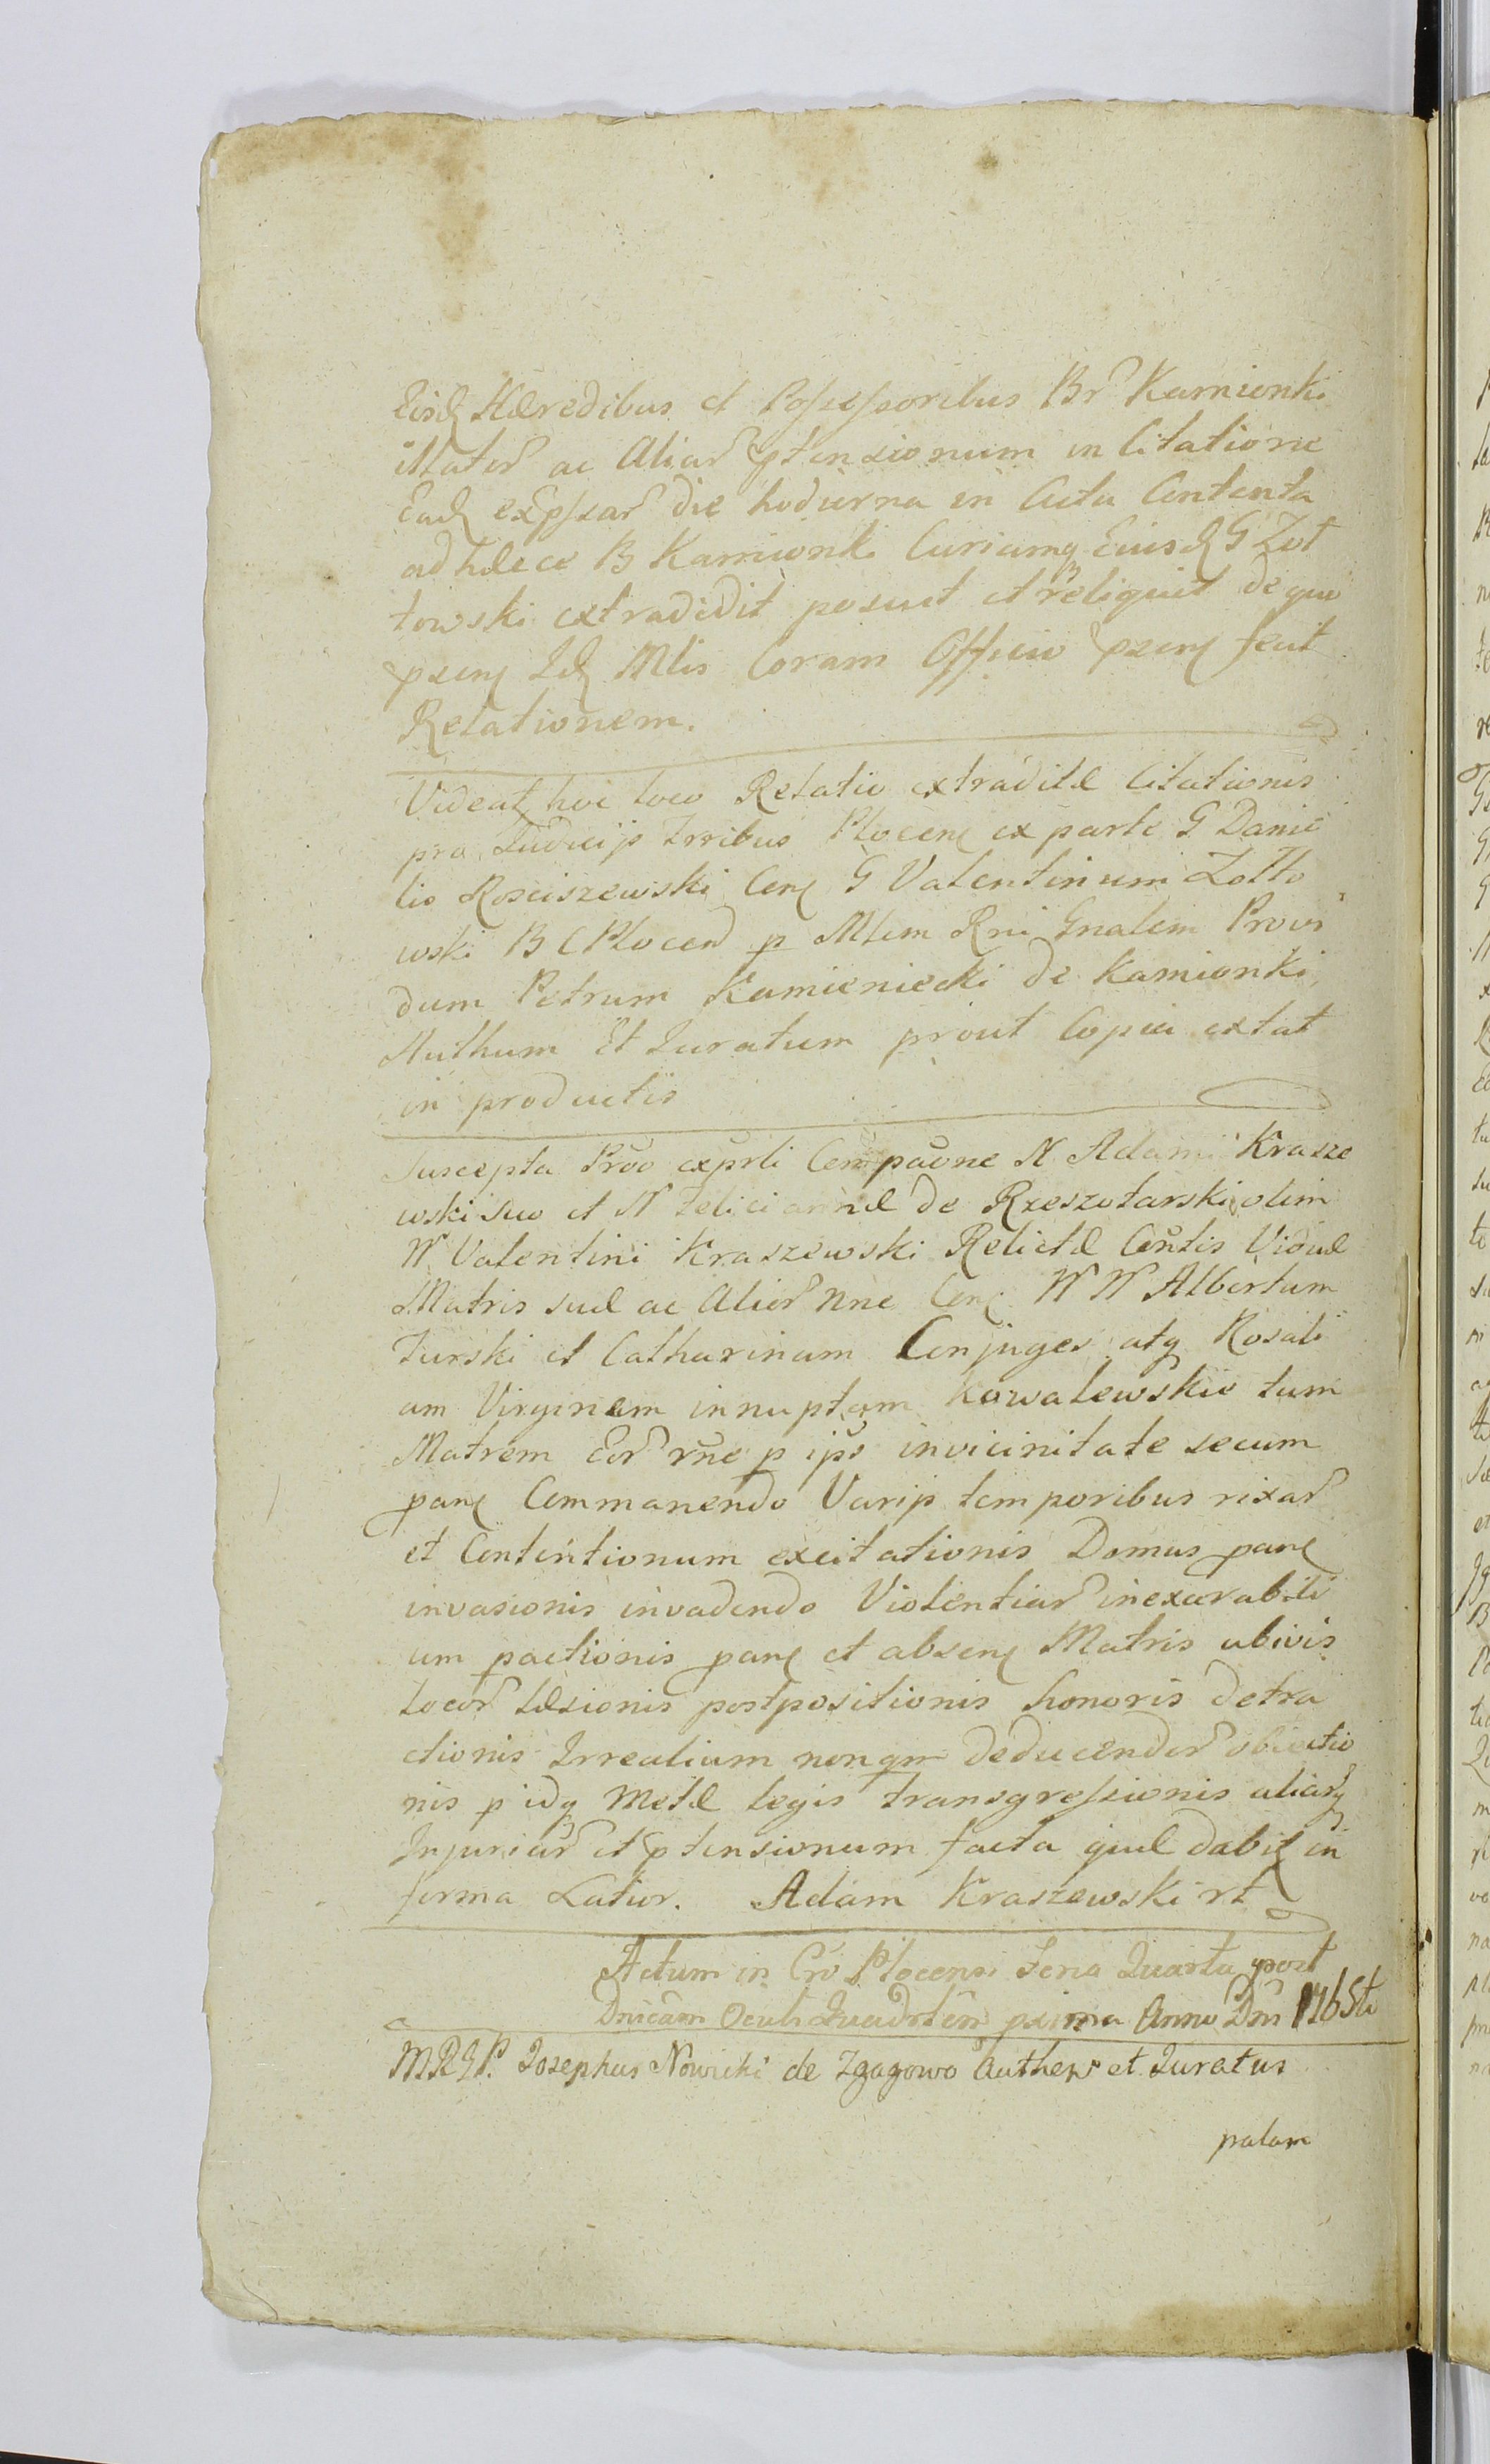 Eisd Hæredibus et Possessoribus Br Kamionki
illator ac Aliar ptensionum in Citatione
Ead expssar die hodierna in Acta Contenta
ad hæce B Kamionki Curiamq Eiusd G Zot
towski extradidit posuit et reliquit de quo
psens Id Mlis Coram Officio psens fecit
Relationem.
Videat hoc loco Relatio extraditæ Citationis
pro Judicijs Trribus Plocen ex parte G Danie
lis Rosciszewski Con G Valentinum Zotto
wski B C Plocen p Mlem Rni Gnalem Provi
dum Petrum Kamieniecki de Kamionki
Authum Et Juratum prout Copia extat
in productis
Suscepta Prto exprti Compaone N Adami Krasze
wski suo et N Feliciannæ de Rzeszotarskie olim
N Valentini Kraszewski Relictæ Contis Viduæ
Matris suæ ac Alior nne Con N N Albertum
Turski et Catharinam Conjuges atq Rosali
am Virginem innuptam Kowalewskie tum
Matrem Eor rne p ips in vicinitate secum
pane Commanendo Varijs temporibus rixar
et Contentionum excitationis Domus pane
invasionis invadendo Violentiar inexcrabili
um pactionis pane et absens Matris ubivis
locor læsionis postpositionis honoris detra
ctionis Irrealium nonqm deducendor obiectio
nis p idq Metæ legis transgressionis aliarq
Injuriar et ptensionum facta quæ dabit in
forma Latior. Adam Kraszewski rt
Actum in Cro Plocensi Feria Quarta post
Dnicam Oculi Quadrlem pxima Anno Dni 1765to
M R G P. Josephus Nowicki de Zgagowo Authen et Juratus
palam